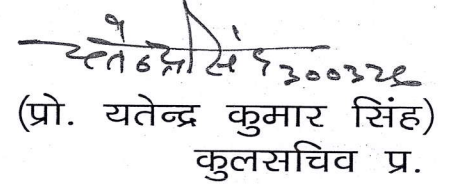 यतेन्द्र सिंह 300326
(प्रो. यतेन्द्र कुमार सिंह)
कुलसचिव प्र.